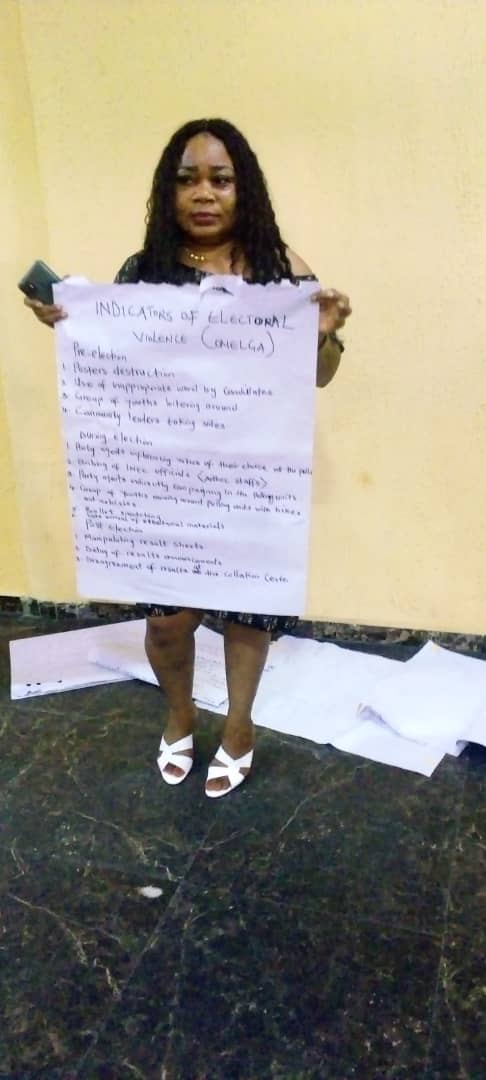 INDICATORS OF ELECTORAL
VIOLENCE (OMELGA)
Pre-election
1. Posters destruction
2. Use of inappropriate word by Candidates
3. Group of youths loitering around
4. Community leaders taking sides
During election
1. Party agents influencing voters of their choice at the polls
2. of INEC officials (Adhoc Staffs)
3. Party agents indirectly campaigning in the Polling units
4. Group of youths moving around polling units with bikes
and vehicles
5. Ballot snatching
Late arrival of materials
Post election
1. Manipulating result sheets
2. Delay of results announcements
3. Disagreement of results at the collation Centre